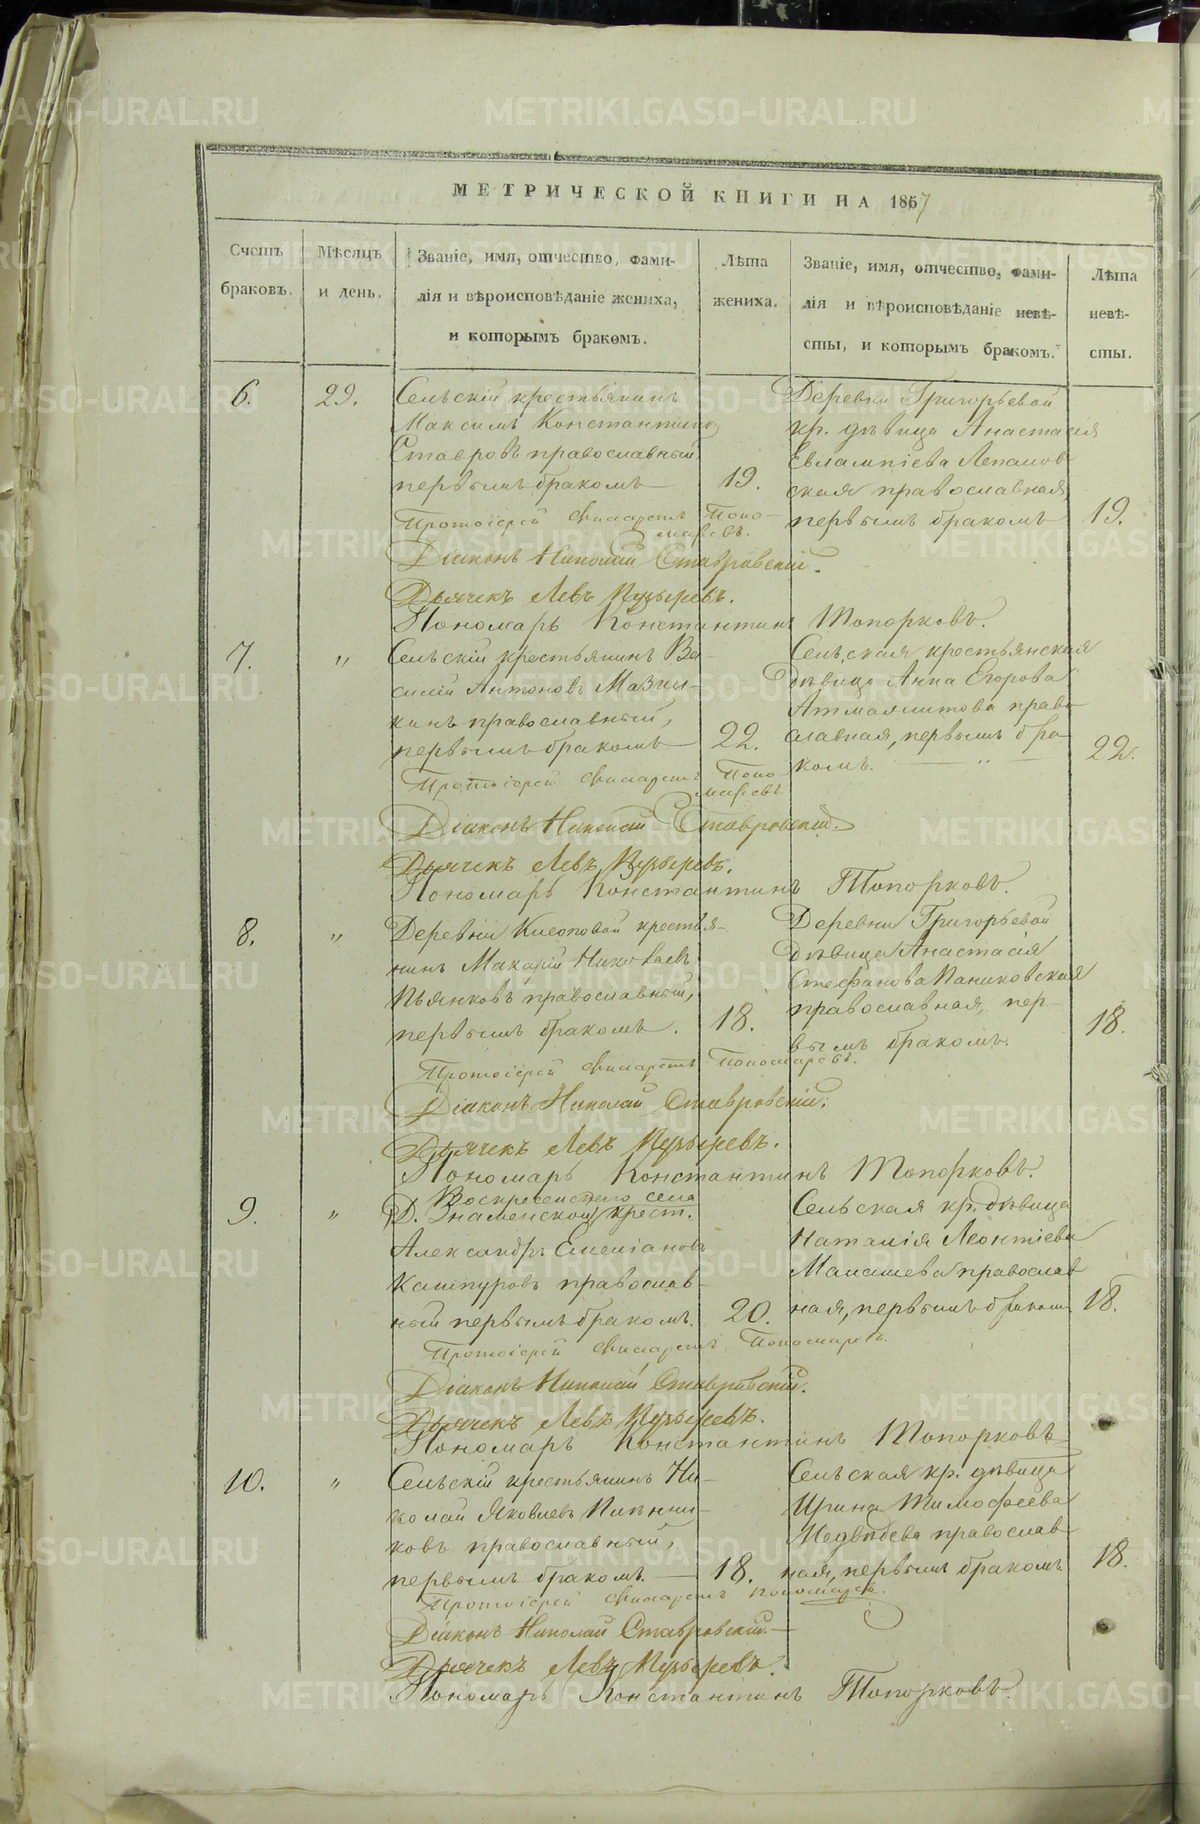 МЕТРИЧЕСКОЙ КНИГИ НА 1857
Счетъ
браковъ.
Мѣсяцъ
и день.
Званіе, имя, отчество, фами-
лія и вѣроисповѣданіе жениха,
и которымъ бракомъ.
Лѣта
жениха.
Званіе, имя, отчество, фами-
лія и вѣроисповѣданіе невѣ-
сты, и которымъ бракомъ.
Лѣта
невѣ-
сты.
6.
29.
Сельскій крестьянинъ
Максимъ Константиновъ
Ставровъ православный
первымъ бракомъ
19.
Деревни Григорьевой
кр. дѣвица Анастасія
Евлампіева
ская православная,
первымъ бракомъ
19.
Протоіерей Поно-
маревъ.
Діаконъ Николай Ставровскій.
Дьячекъ Левъ Пузыревъ.
Пономарь Константинъ Топорковъ.
7.
"
Сельскій крестьянинъ Ва-
силій Антоновъ
кинъ православный,
первымъ бракомъ
22.
Сельская крестьянская
дѣвица Анна Егорова
право
славная, первымъ бра
комъ.
22.
Протоіерей Поно-
маревъ
Діаконъ Николай Ставровскій.
Дьячекъ Левъ Пузыревъ.
Пономарь Константинъ Топорковъ.
8.
"
Деревни крестья-
нинъ Макарій Николаевъ
Пьянковъ православный,
первымъ бракомъ.
18.
Деревни Григорьевой
дѣвица Анастасія
Стефанова Паниковская
православная, пер-
вымъ бракомъ.
18.
Протоіерей Пономаревъ.
Діаконъ Николай Ставровскій.
Дьячекъ Левъ Пузыревъ.
Пономарь Константинъ Топорковъ.
9.
"
Воскресенскаго села
Д. Знаменской крест.
Александръ Емеліановъ
православ-
ный первымъ бракомъ.
20.
Сельская кр. дѣвица
Наталія Леонтіева
православ
ная, первымъ бракомъ
18.
Протоіерей Пономаревъ.
Діаконъ Николай Ставровскій.
Дьячекъ Левъ Пузыревъ.
Пономарь Константинъ Топорковъ
10.
"
Сельскій крестьянинъ Ни-
колай Яковлевъ
ковъ православный,
первымъ бракомъ.
18.
Сельская кр. дѣвица
Ирина Тимофеева
Медвѣдева православ
ная, первымъ бракомъ
18.
Протоіерей Пономаревъ.
Діаконъ Николай Ставровскій.
Дьячекъ Левъ Пузыревъ.
Пономарь Константинъ Топорковъ.
METRIKI.GASO-URAL.RU